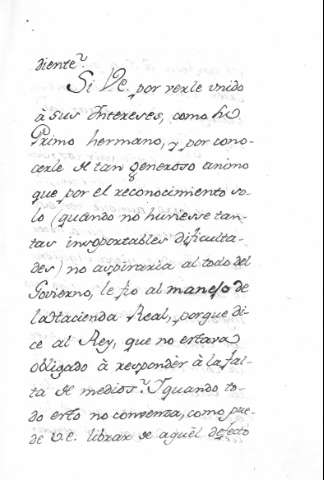 diente?
Si V.E. por verle unido
à sus Intereses, como su
Primo hermano, y por cono-
cerle de tan generoso animo
que por el reconocimiento so-
lo (quando no huviesse tan-
tas insoportables dificulta-
des) no aspiraria al todo del
Govierno, le fio al manejo de
la Hacienda Real, porque di-
ce al Rey, que no estava
obligado à responder à la fal-
ta de medios? Y quando to-
do esto no convenza, como pue-
de V.E. librar se aquel defecto